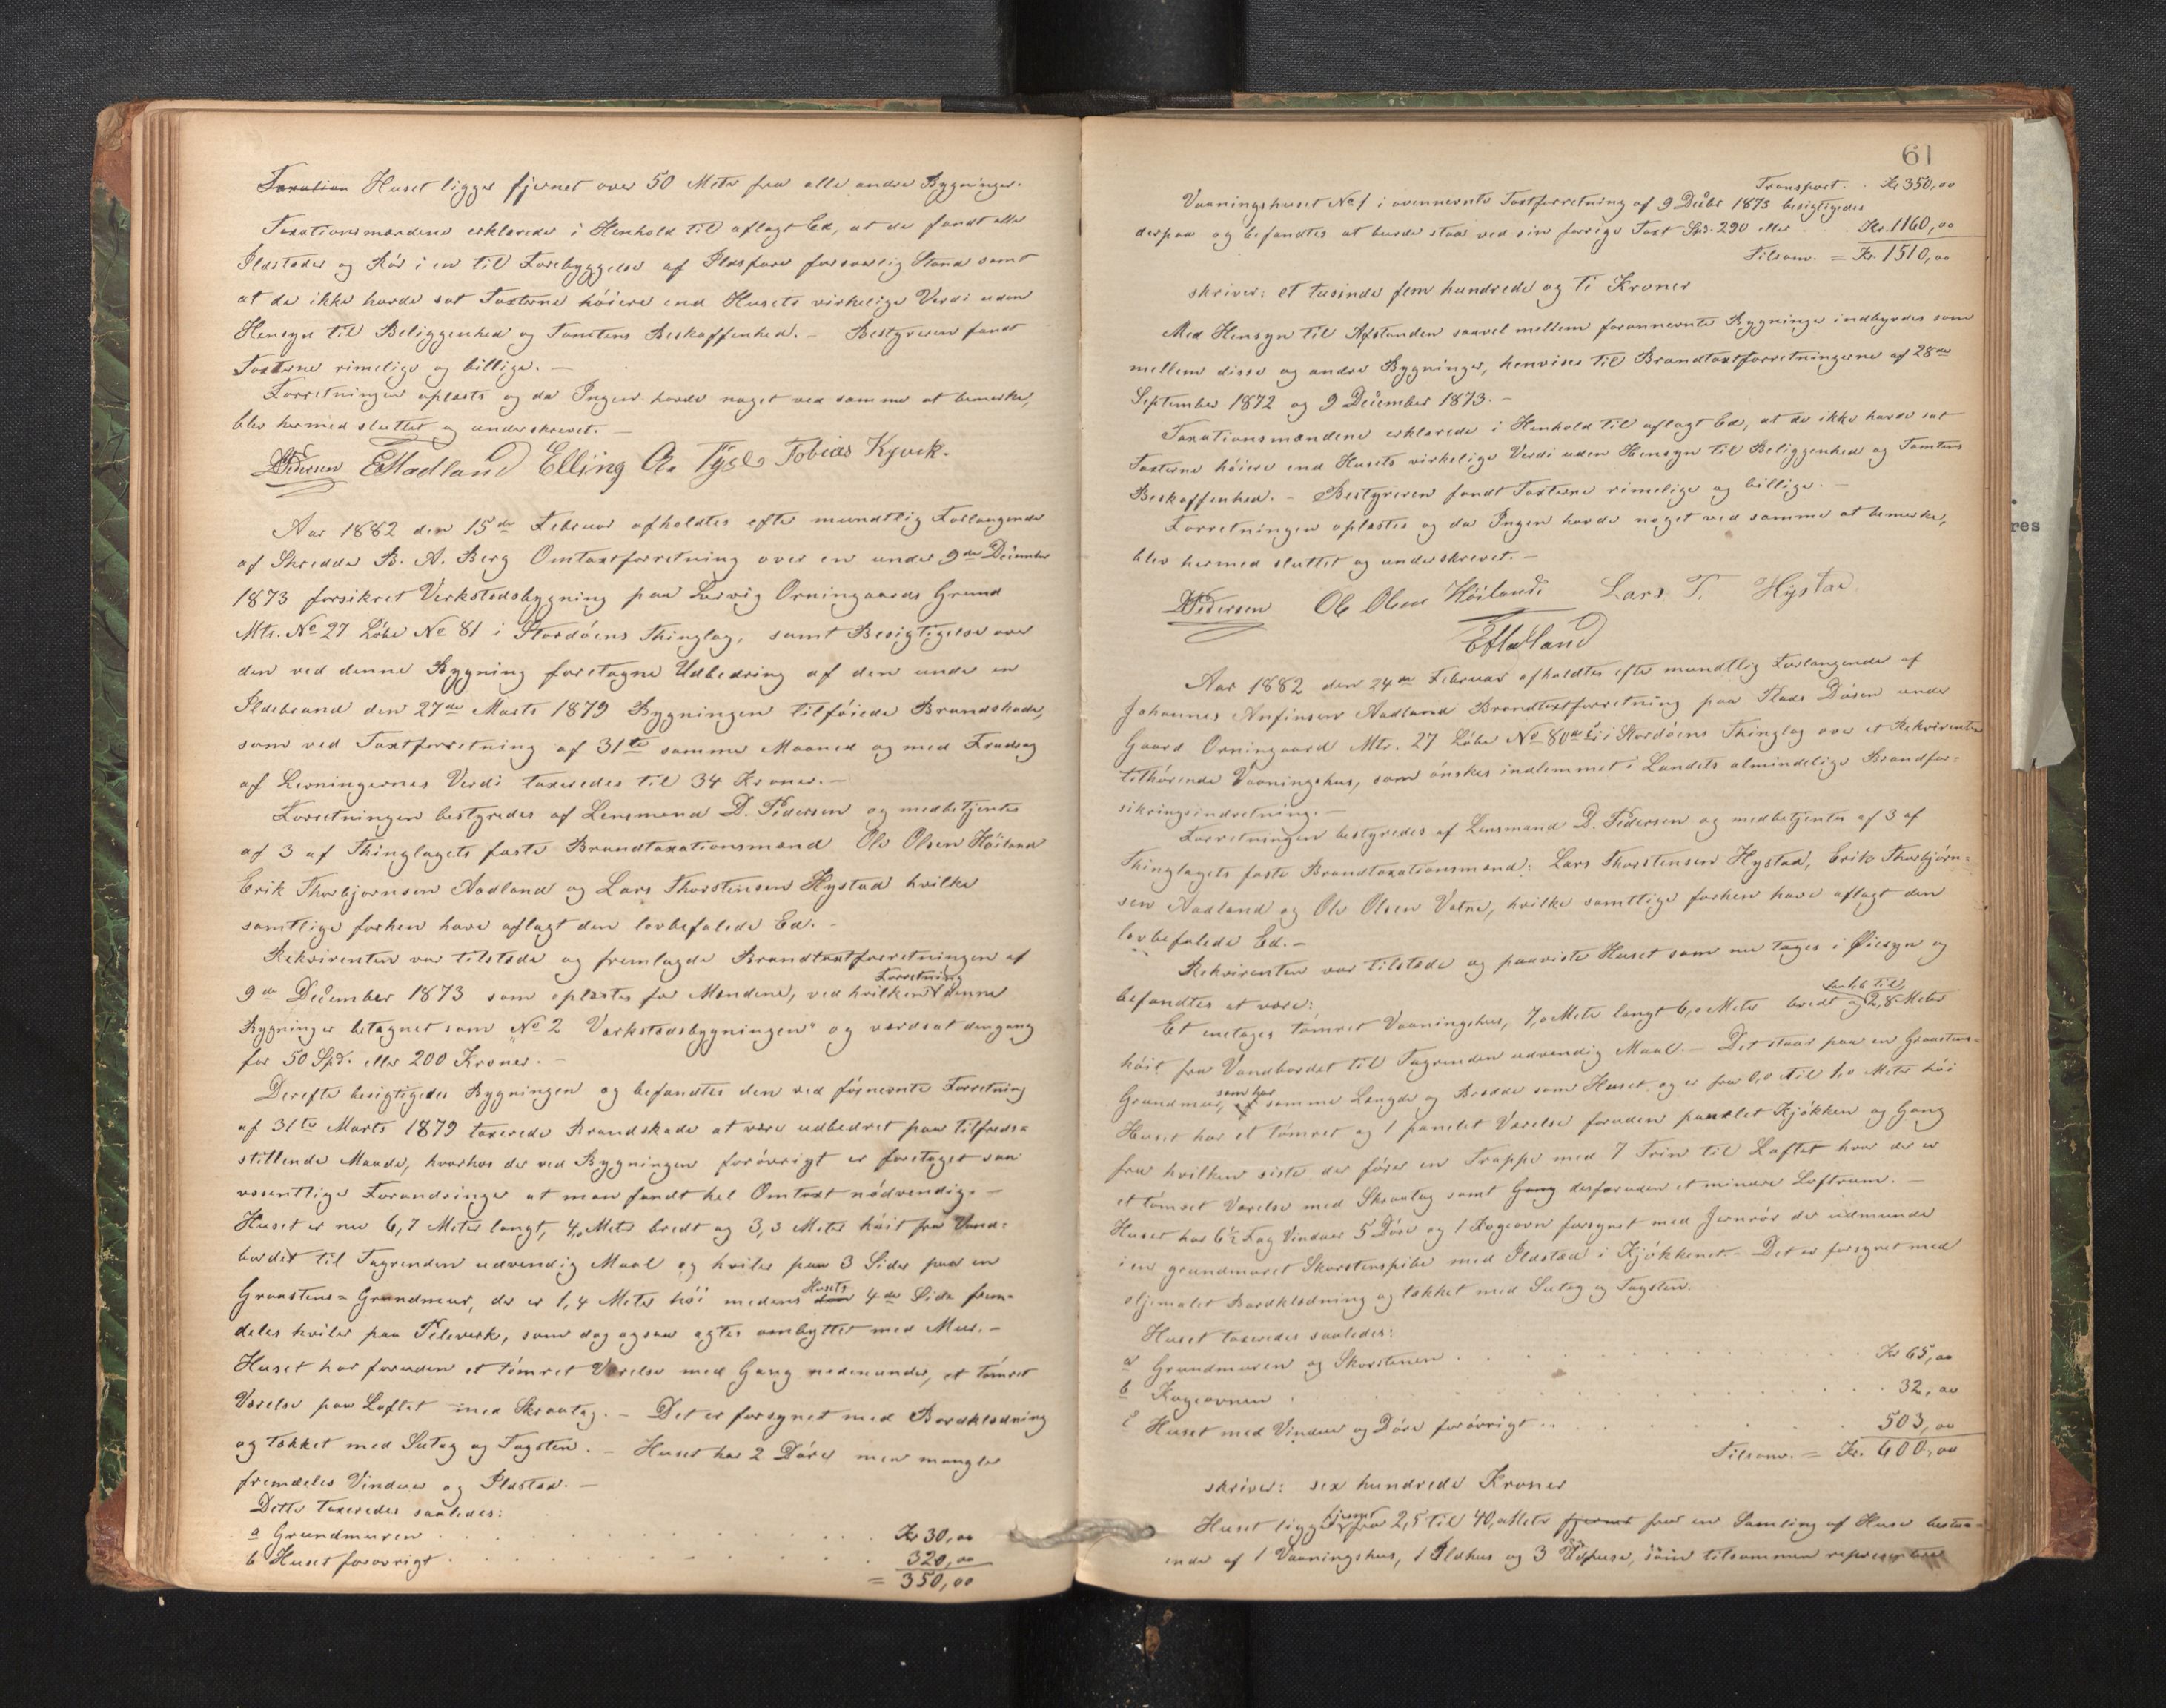 Taxation Huset ligger fjernet over 50 Meter fra alle andre Bygninger.
Taxationsmændene erklærede i Henhold til aflagt Ed, at de fandt alle
Ildsteder og Rór i en til Forebyggelse af Ildsfare forsvarlig Stand samt
at de ikke havde sat Taxterne höiere end Husets virkelige Verdi uden
Hensyn til Beliggenhed og Tomtens Beskaffenhed. – Bestyreren fandt
Taxterne rimelige og billige. –
Forretningen oplæsts og da Ingen havde noget ved samme at bemerke,
blev hermed sluttet og underskrevet. –
DPedersen EAadland Elling O. Tyse Tobias Kyvik.
Aar 1882 den 15de Februar afholdtes efter mundtlig Forlangende
af Skredder B. A. Berg Omtaxtforretning over en under 9de December
1873 forsikret Verkstedsbygning paa Ledvig Orningaards Grund
Mtr. No 27 Löbe No 81 i Stordöens Thinglag, samt Besigtigelse over
den ved denne Bygning foretagne Udbedring af den under en
Ildebrand den 27de Marts 1879 Bygningen tilföiede Brandskade,
som ved Taxtforretning af 31te samme Maaned og med Fradrag
af Levningernes Verdi taxeredes til 34 Kroner. –
Forretningen bestyredes af Lensmand D. Pedersen og medbetjentes
af 3 af Thinglagets faste Brandtaxationsmænd Ole Olsen Höiland
Erik Thorbjornsen Aadland og Lars Thorstensen Hystad hvilke
samtlige forhen have aflagt den lovbefalede Ed. –
Rekvirenten var tilstede og fremlagde Brandtaxtforretningen af
9de December 1873 som oplæstes for Mændene, ved hvilken Forretning denne
Bygning er betegnet som "No 2 Verkstedsbygningen" og verdsat dengang
for 50 Spd. eller 200 Kroner. –
Derefter besigtigedes Bygningen og befandtes den ved förnevnte Forretning
af 31te Marts 1879 taxerede Brandskade at være udbedret paa tilfreds=
stillende Maade, hvorhos der ved Bygningen foróvrigt er foretaget saa
væsentlige Forandringer at man fandt hel Omtaxt nödvendig. –
Huset er nu 6,7 Meter langt, 4,0 Meter bredt og 3,3 Meter höit fra Vand=
bordet til Tagrenden udvendig Maal og hviler paa 3 Sider paa en
Graastens=Grundmur, der er 1,4 Meter höi medens den Husets 4de Side frem=
deles hviler paa Peleverk, som dog ogsaa agtes ombyttet med Mur. –
Huset har foruden et tömret Værelse med Gang nedenunder, et tömret
Værelse paa Loftet med Skraatag. – Det er forsynet med Bordklædning
og tækket med Sutag og Tagsten. – Huset har 2 Döre men mangler
fremdeles Vinduer og Ildsted. –
Dette taxeredes saaledes:
a Grundmuren . . . Kr 30,00
b Huset forövrigt . . . 320,00
= 350,00
61
Transport. . Kr 350,00
Vaaningshuset No 1 i ovennevnte Taxtforretning af 9 Decbr 1873 besigtigedes
derpaa og befandtes at burde staa ved sin forrige Taxt Spd. 290 eller . . Kr. 1160,00
Tilsam. = Kr 1510,00
skriver: et tusinde fem hundrede og Ti Kroner
Med Hensyn til Afstanden saavel mellem forannevnte Bygninger indbyrdes som
mellem disse og andre Bygninger, henvises til Brandtaxtforretningerne af 28de
September 1872 og 9 December 1873. –
Taxationsmændene erklærede i Henhold til aflagt Ed, at de ikke havde sat
Taxterne höiere end Husets virkelige Verdi uden Hensyn til Beliggenhed og Tomtens
Beskaffenhed. – Bestyreren fandt Taxterne rimelige og billige. –
Forretningen oplæstes og da Ingen havde noget ved samme at bemerke,
blev hermed sluttet og underskrevet. –
DPedersen Ole Olsen Höiland Lars T. Hystad
EAadland
Aar 1882 den 24de Februar afholdtes efter mundtlig Forlangende af
Johannes Anfinsen Aadland Brandtaxtforretning paa Plads Dösen under
Gaard Orningaard Mtr. 27 Löbe No 80a i Stordöens Thinglag over et Rekvirenten
tilhörende Vaaningshus, som önskes indlemmet i Landets almindelige Brandfor=
sikringsindretning. –
Forretningen bestyredes af Lensmand D. Pedersen og medbetjentes af 3 af
Thinglagets faste Brandtaxationsmænd: Lars Thorstensen Hystad, Erik Thorbjörn=
sen Aadland og Ole Olsen Vatne, hvilke samtlige forhen have aflagt den
lovbefalede Ed. –
Rekvirenten var tilstede og paaviste Huset som nu toges i Öiesyn og
befandtes at være:
Et enetages tömret Vaaningshus, 7,0 Meter langt 6,0 Meter bredt og fra 1,6 til 2,8 Meter
höit fra Vandbordet til Tagrenden udvendig Maal. – Det staar paa en Graastens=
Grundmur, som har samme Længde og Bredde som Huset og er fra 0,0 til 1,0 Meter höi
Huset har et tömret og 1 panelet Værelse foruden panelet Kjökken og Gang
fra hvilken siste der förer en Trappe med 7 Trin til Loftet hvor der er
et tömret Værelse med Skraatag samt Gang desforuden et mindre Loftrum. –
Huset har 6½ Fag Vinduer 5 Döre og 1 Kogeovn forsynet med Jernrör der udmunder
i en grundmuret Skorstenspibe med Ildsted i Kjökkenet. – Det er forsynet med
oljemalet Bordklædning og tækket med Sutag og Tagsten.
Huset taxeredes saaledes:
a Grundmuren og Skorstenen . . . Kr 65,00
b Kogeovnen . . . 32,00
c Huset med Vinduer og Döre forövrigt . . . 503,00
Tilsam. = Kr. 600,00
skriver: sex hundrede Kroner
Huset ligger fjernt fra 2,5 til 40,0 Meter fjernet fra en Samling af Huse bestaa=
ende af 1 Vaaningshus, 1 Ildhus og 3 Udhuse, som tilsammen representere
res